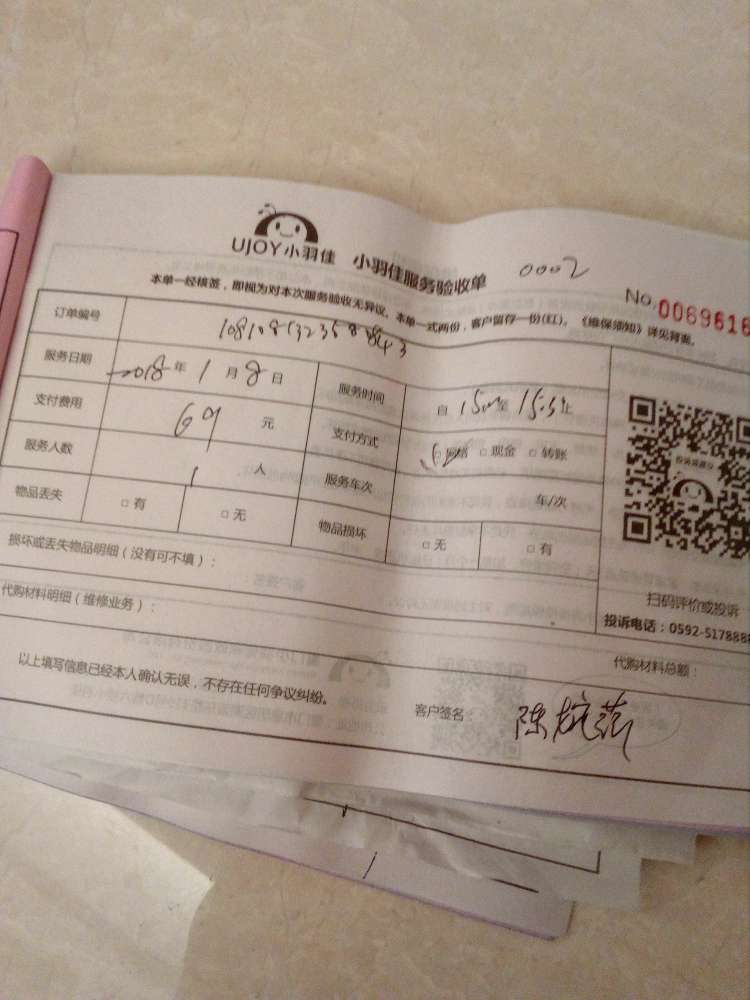 UJOY小羽佳 小羽佳服务验收单 0002
No. 0069616
本单一经核签，即视为对本次服务验收无异议。本单一式两份，客户留存一份(红)。《维保须知》详见背面。
订单编号
服务日期 2018年1月8日 服务时间 自 至 止
支付费用 69 元 支付方式 □网络 □现金 □转账
服务人数 1 人 服务车次 车/次
物品丢失 □有 □无 物品损坏 □无 □有
损坏或丢失物品明细（没有可不填）：
扫码评价或投诉
投诉电话：0592-5178888
代购材料明细（维修业务）：
代购材料总额：
以上填写信息已经本人确认无误，不存在任何争议纠纷。
客户签名：陈